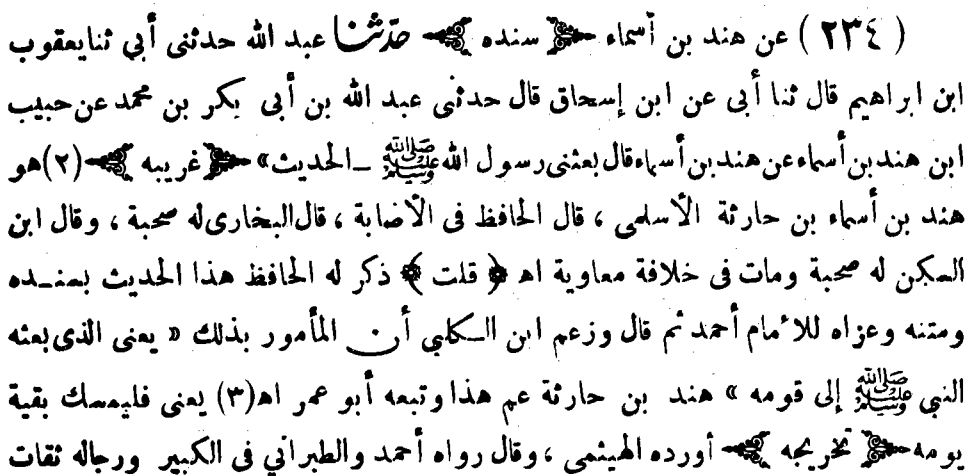 ( ٢٣٤ ) عن هند بن أسماء ﴿ سنده ﴾ حدثنا عبد الله حدثنى أبي ثنا يعقوب
ابن ابراهيم قال ثنا أبى عن ابن إسحاق قال حدثنى عبد الله بن أبى بكر بن محمد عن حبيب
ابن هند بن أسماء عن هند بن أسماء قال بعثنى رسول الله ﷺ ــ الحديث» ﴿ غريبه ﴾ (٢) هو
هند بن أسماء بن حارثة الأسلمى ، قال الحافظ فى الأصابة ، قال البخارى له صحبة ، وقال ابن
السكن له صحبة ومات فى خلافة معاوية اهـ ﴿ قلت ﴾ ذكر له الحافظ هذا الحديث بسنــده
ومتنه وعزاه للأمام أحمد ثم قال وزعم ابن الــكلبي أن المأمور بذلك « يعنى الذى بعثه
النبي ﷺ إلى قومه » هند بن حارثة عم هذا وتبعه أبو عمر اهـ (٣) يعنى فليمسك بقية
يومه ﴿ تخريجه ﴾ أورده الهيثمى ، وقال رواه أحمد والطبرانى فى الكبير ورجاله ثقات